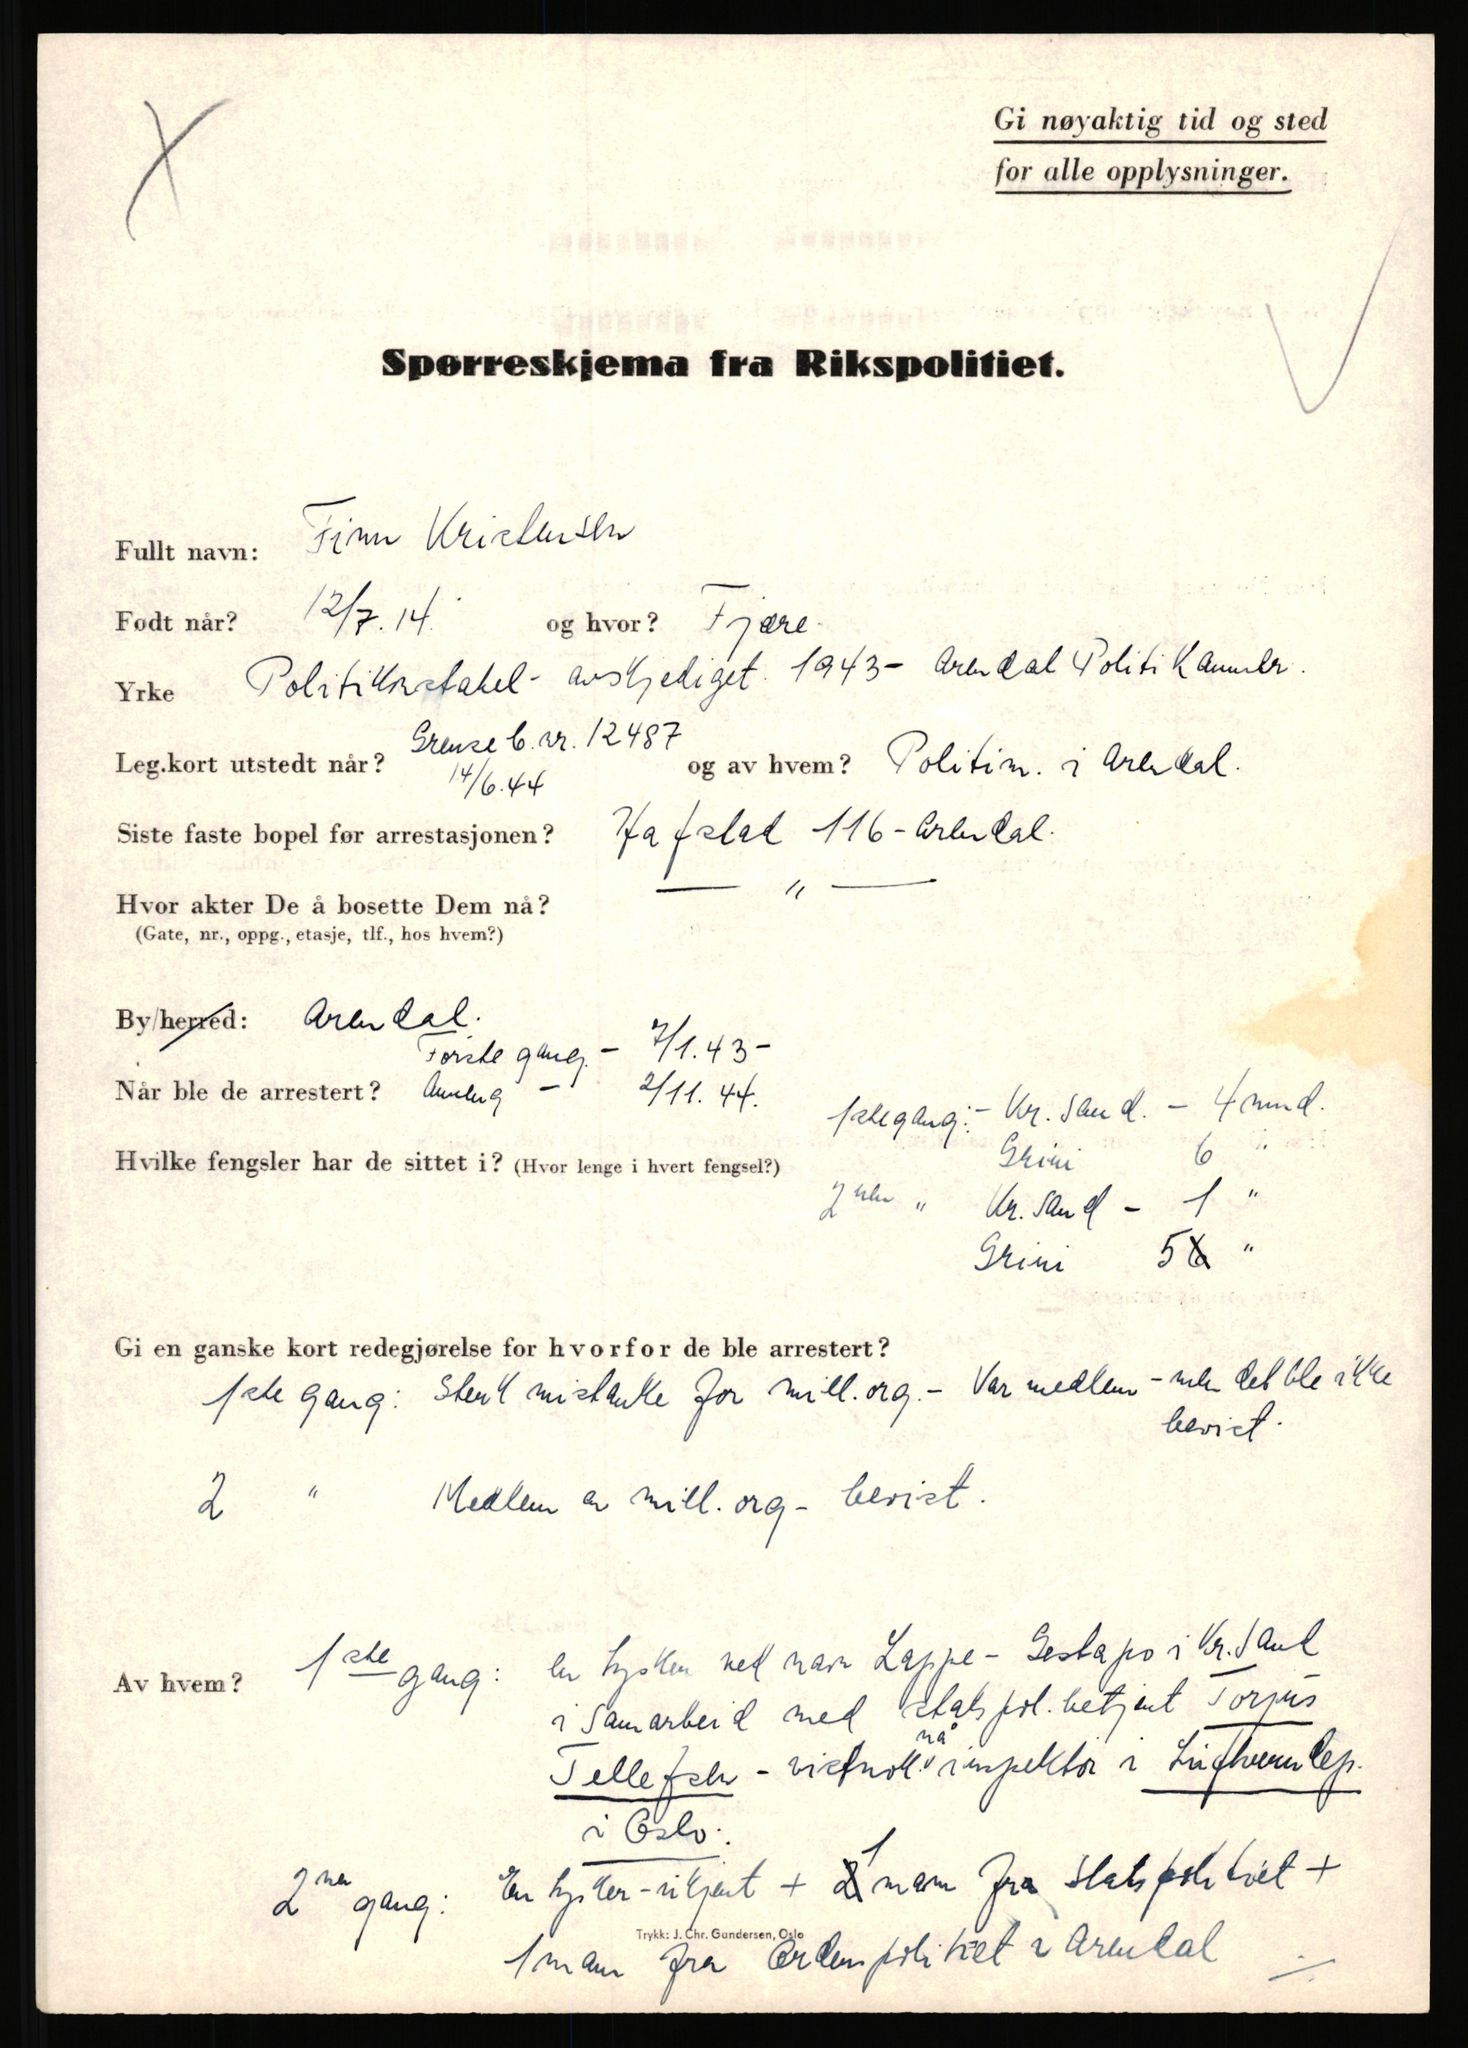 Gi nøyaktig tid og sted
for alle opplysninger.
Spørreskjema fra Rikspolitiet.
Fullt navn: Finn Kristensen
Født når? 12/7.14. og hvor? Fjære.
Yrke Politikonstabel - avskjediget. 1943 - Arendal Politikammer.
Leg.kort utstedt når? Grense b. nr. 12487 14/6.44 og av hvem? Politim. i Arendal.
Siste faste bopel før arrestasjonen? Hafstad 116 - Arendal.
Hvor akter De å bosette Dem nå? — " —
(Gate, nr., oppg., etasje, tlf., hos hvem?)
By/herred: Arendal.
Første gang. - 7/1.43 -
Når ble de arrestert? Annen g - 2/11.44.
Hvilke fengsler har de sittet i? (Hvor lenge i hvert fengsel?)
1ste gang: - Kr. sand. - 4 mnd.
Grini 6 "
2nen " Kr. sand - 1 "
Grini 5 "
Gi en ganske kort redegjørelse for hvorfor de ble arrestert?
1ste gang: Sterk mistanke for mill. org. - Var medlem - men det ble ikke
bevist.
2 " Medlem av mill. org - bevist.
Av hvem? 1ste gang: En tysker ved navn Lappe - Gestapo i Kr. Sand
i samarbeid med statspol. betjent Torjus
Tellefsen - vistnok nå inspektør i Luftverndep.
i Oslo.
2nen gang: En tysker - ukjent + 1 mann fra Statspolitiet +
Trykk: J. Chr. Gundersen, Oslo
1 mann fra Ordenspolitiet i Arendal